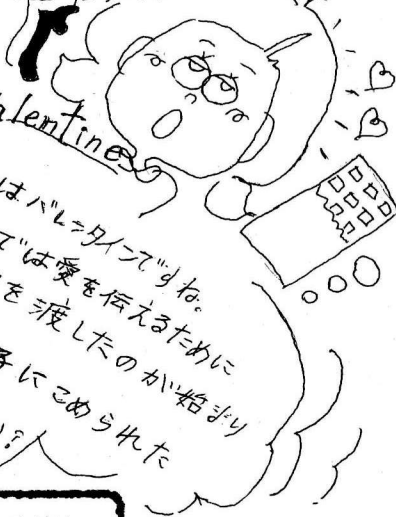 alentines
はバレンタインですね。
では愛を伝えるために
を渡したのが始まり
子にこめられた
?